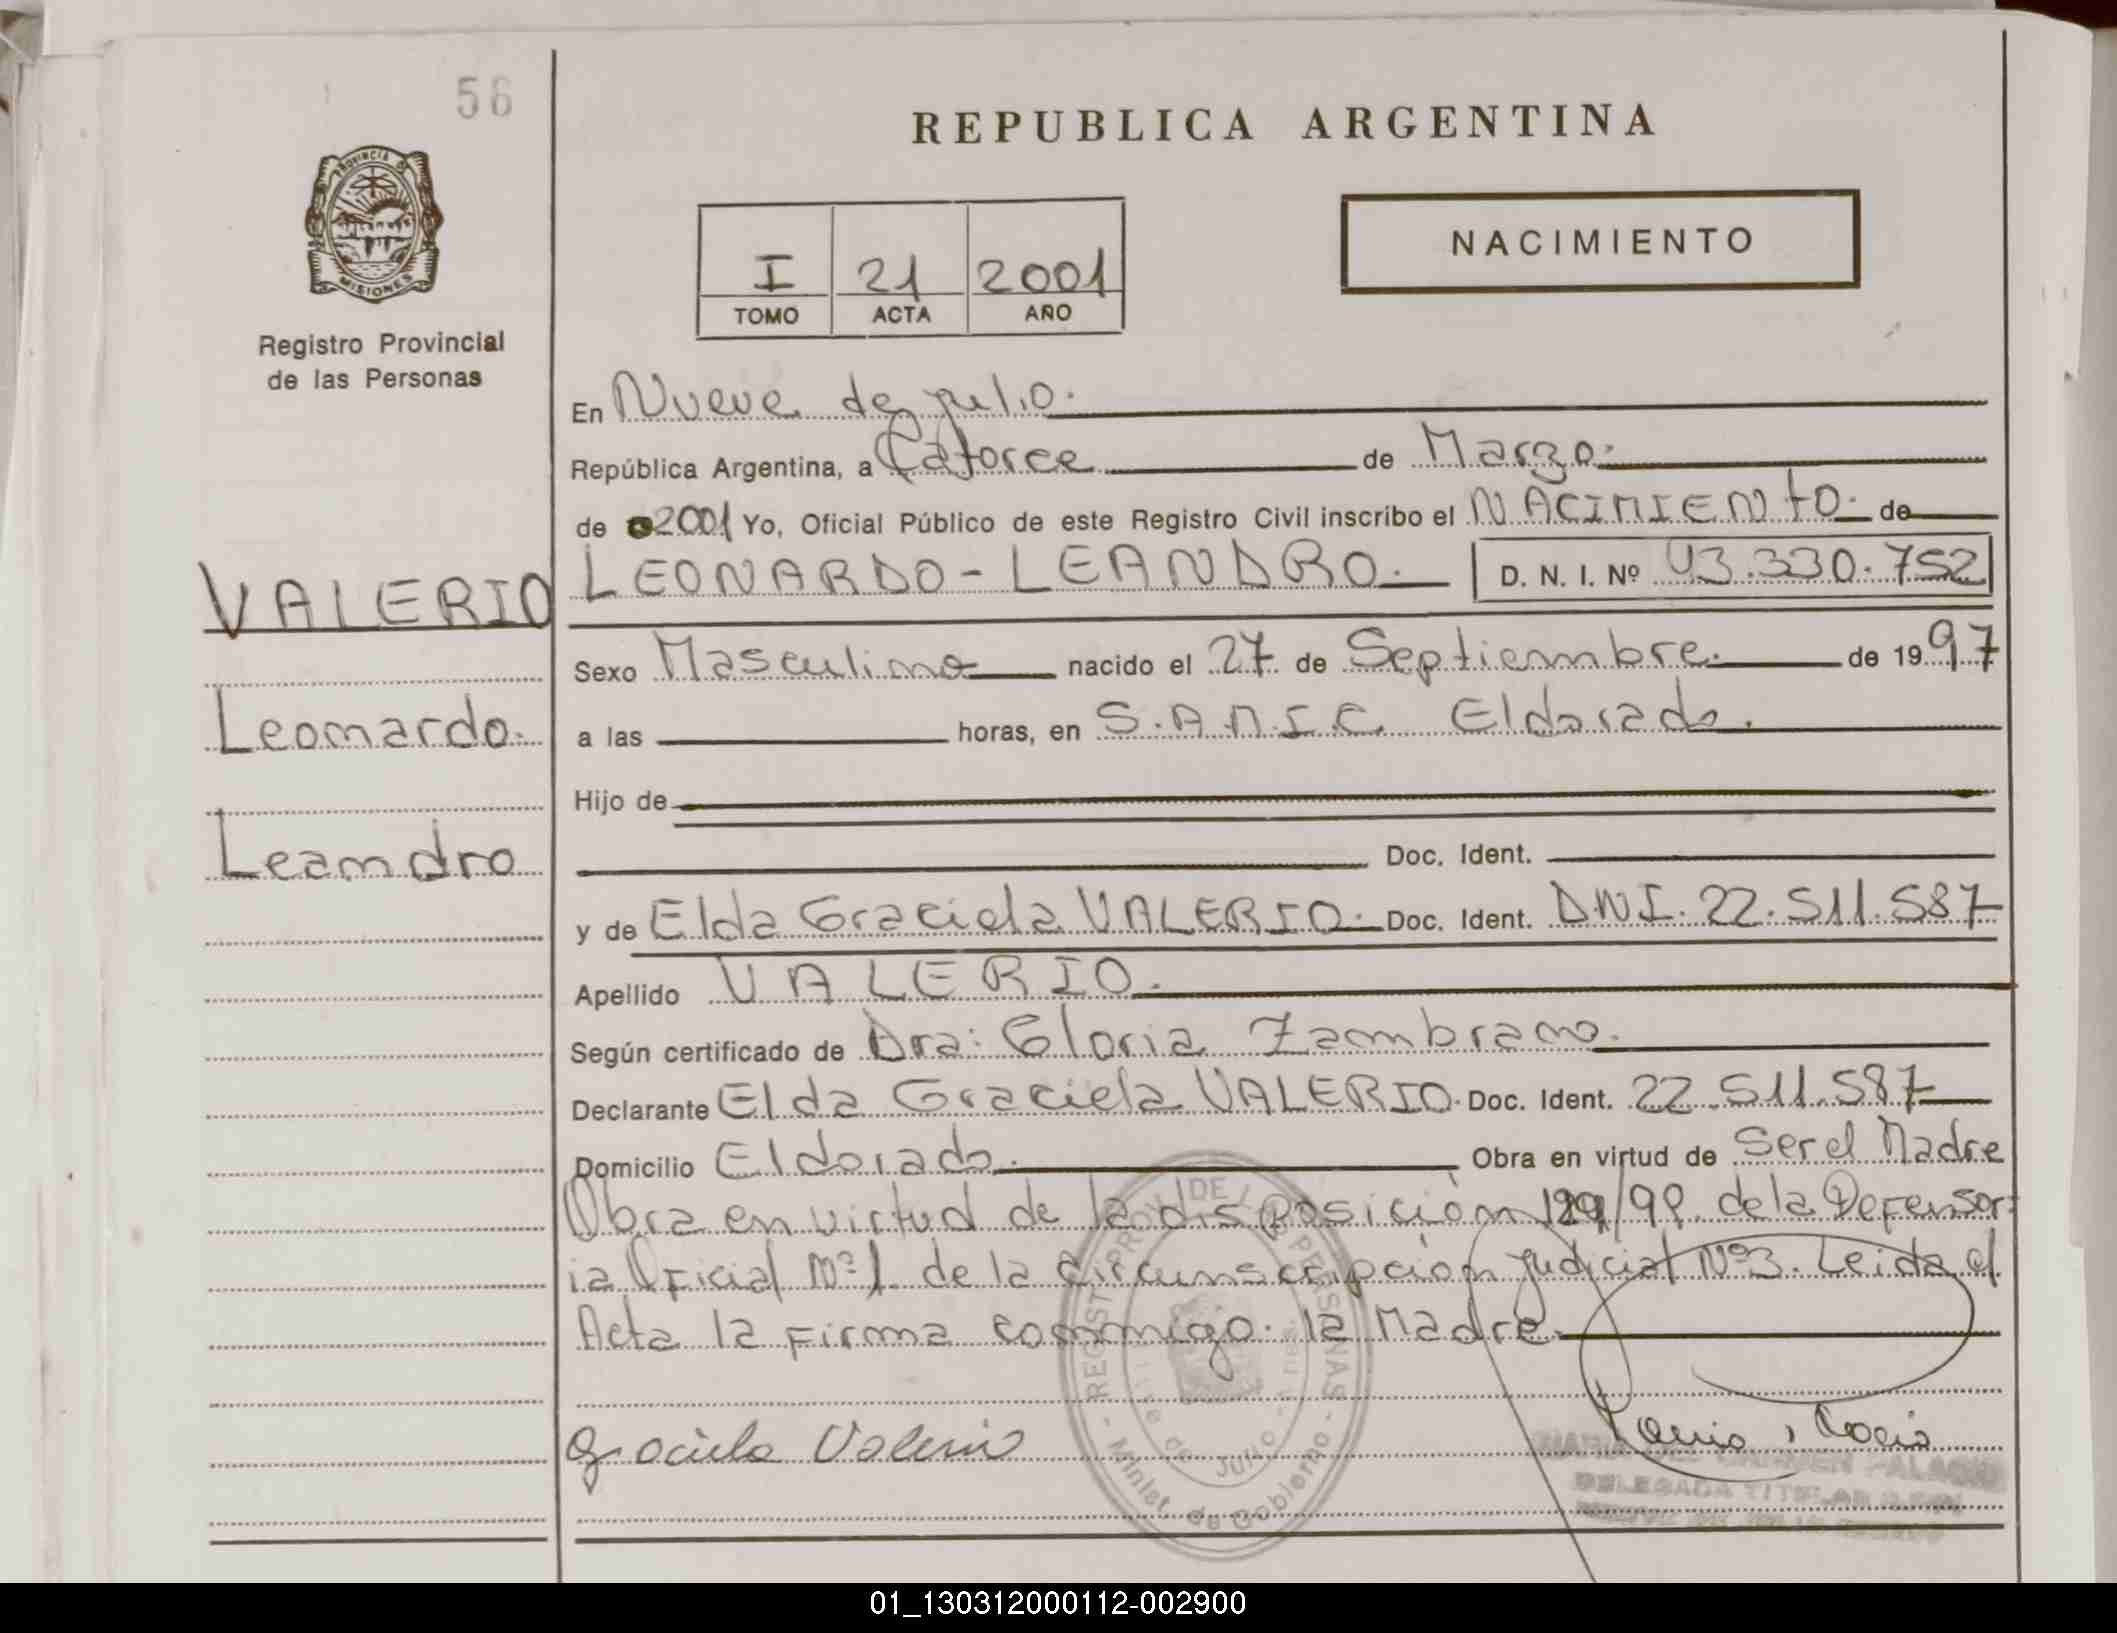 56
REPUBLICA ARGENTINA
PROVINCIA DE
MISIONES
Registro Provincial
de las Personas
I 21 2001
TOMO ACTA AÑO
NACIMIENTO
En Nueve de julio.
República Argentina, a Catorce de Marzo.
de 2001 Yo, Oficial Público de este Registro Civil inscribo el NACIMIENTO. de
VALERIO LEONARDO - LEANDRO. D. N. I. Nº 43.330.752
Sexo Masculino nacido el 27 de Septiembre. de 1997
Leonardo.
a las horas, en S.A.M.I.C. Eldorado.
Hijo de
Leandro
Doc. Ident.
y de Elda Graciela VALERIO. Doc. Ident. DNI. 22.511.587
Apellido VALERIO.
Según certificado de Dra: Gloria Zambrano.
Declarante Elda Graciela VALERIO. Doc. Ident. 22.511.587
Domicilio Eldorado. Obra en virtud de Ser el Madre
Obra en virtud de la disposición /99. de la Defensor-
ia Oficial Nº 1. de la circunscripción judicial Nº 3. Leida el
Acta la firma conmigo. la Madre.
Graciela Valerio
REGISTRO PROV. DE LAS PERSONAS
de Julio
Minist. de Gobierno
DEL CARMEN PALACIO
DELEGADA TITULAR
01_130312000112-002900